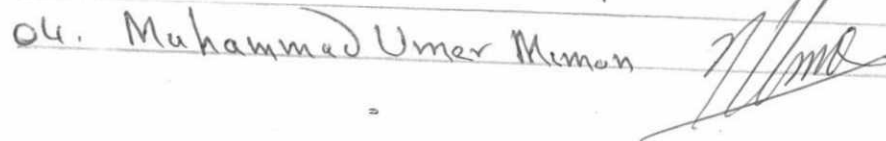 04. Muhammad Umer Memon